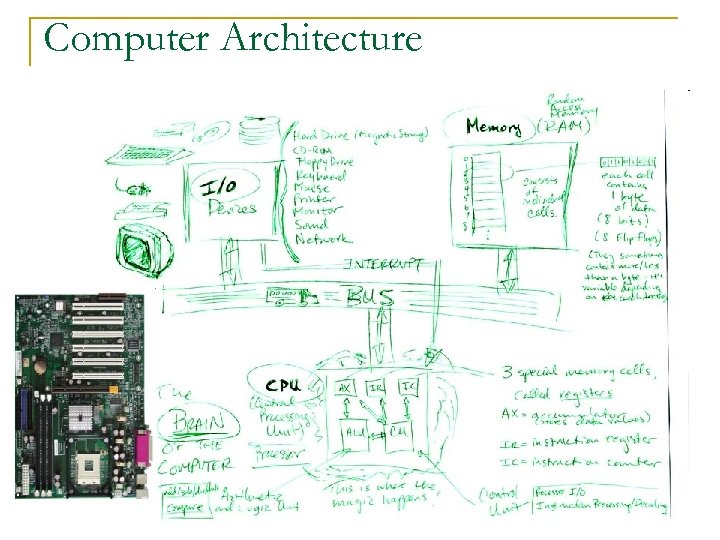 Computer Architecture
Random
Access
Memory
Memory (RAM)
Hard Drive (Magnetic Storage)
CD-ROM
Floppy Drive
Keyboard
Mouse
Printer
Monitor
Sound
Network
I/O
Devices
0
1
2
3
4
5
6
7
8
consists
of
individual
cells.
each cell
contains
1 byte
of data
(8 bits)
(8 Flip Flops)
(They sometimes
contain more/less
than a byte it's
variable depending
on the architecture)
INTERRUPT
BUS
The
BRAIN
OF THE
COMPUTER
CPU
(Central
Processing
Unit)
Processor
AX
IR
IC
ALU
CU
3 special memory cells,
called registers
AX = accumulator
(saves data values)
IR = instruction register
IC = instruction counter
add/sub/mult/div
Compare
Arithmetic
and Logic Unit
This is where the
magic happens.
Control
Unit
Processor I/O
Instruction Processing/Decoding